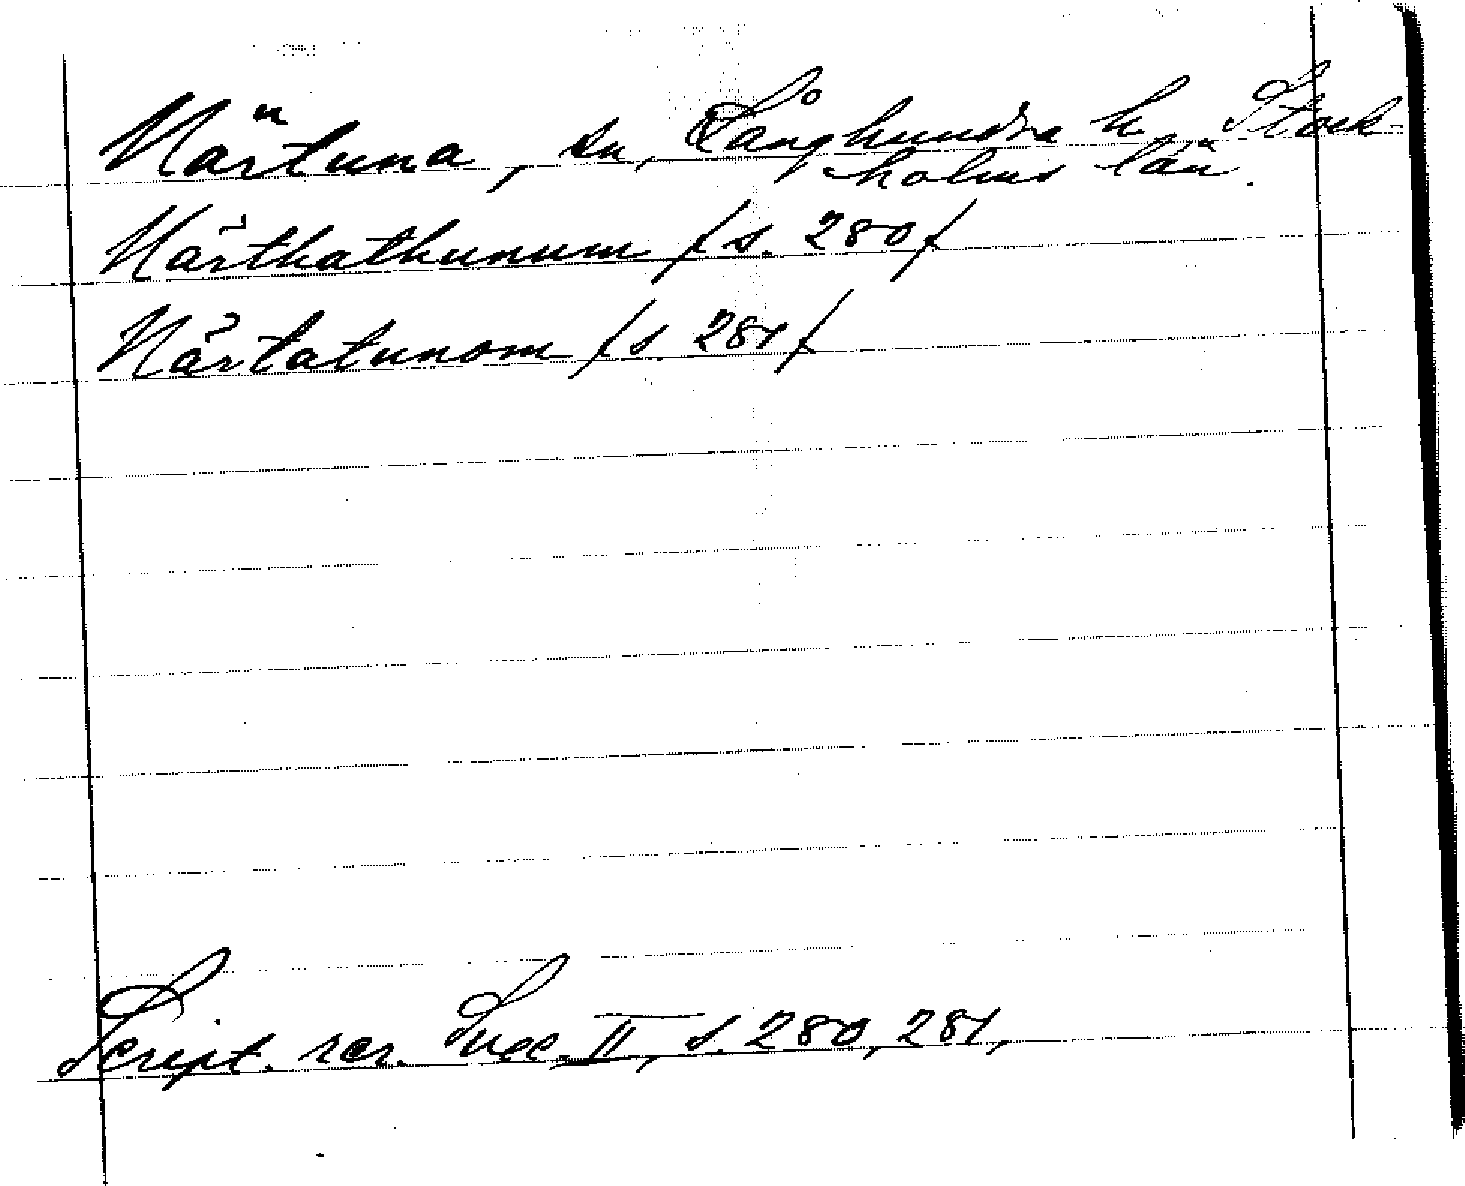 Närtuna, sn, Långhundra h. Stock-
holms län.
Närthathunum /s. 280/
Närtatunom /s. 281/
Script. rer. Suec. II, s. 280, 281,